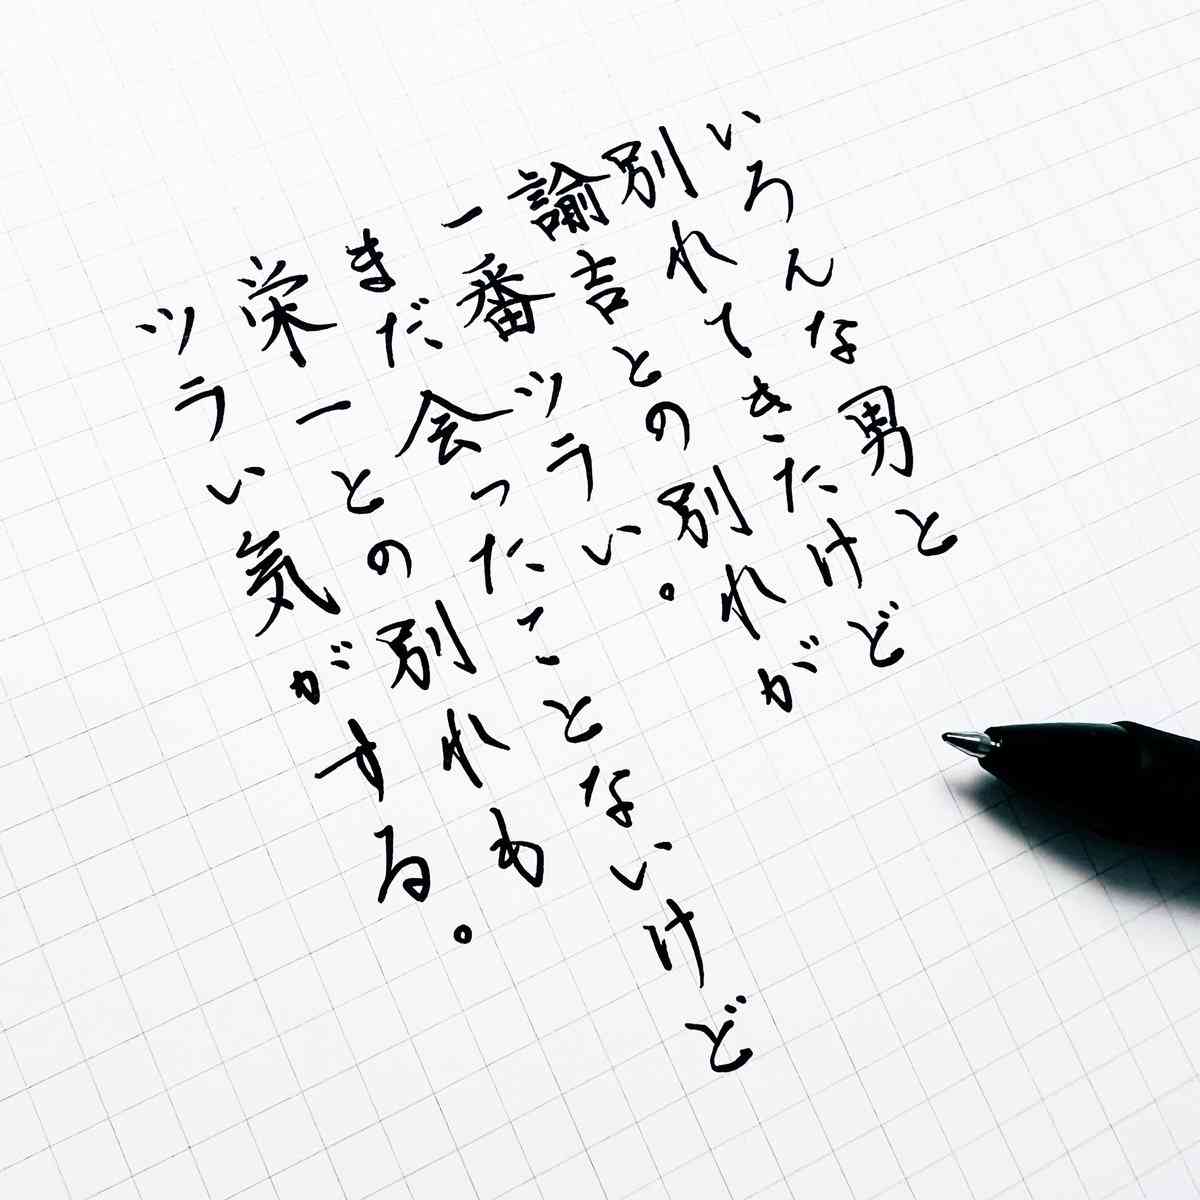 いろんな男と
別れてきたけど
諭吉との別れが
一番ツラい。
まだ会ったことないけど
栄一との別れも
ツラい気がする。